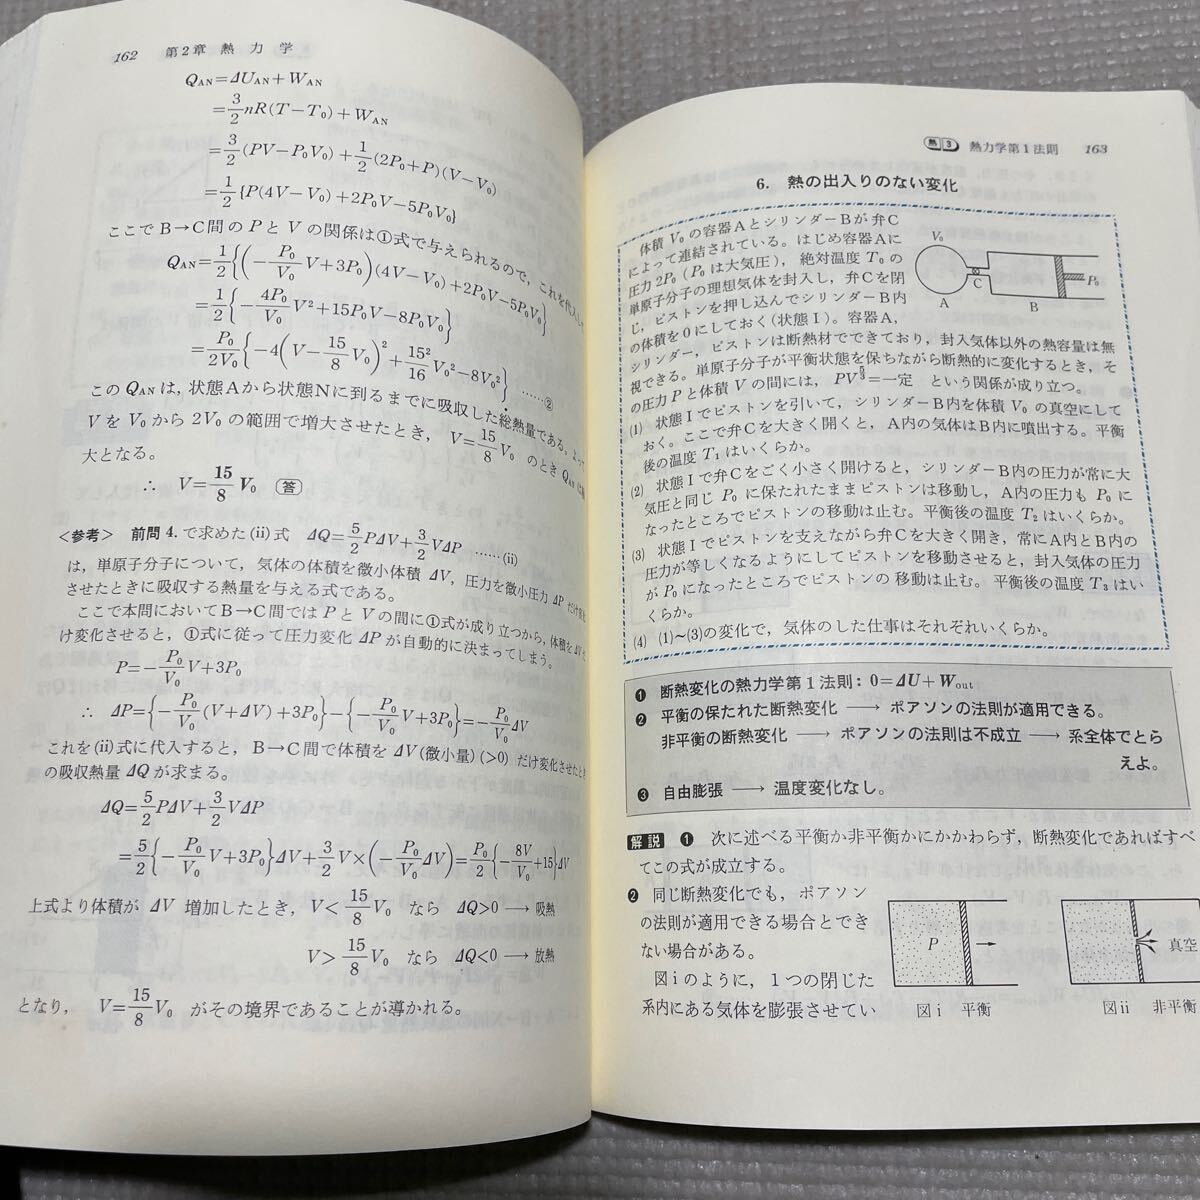 162 第2章 熱力学
Q_AN=ΔU_AN+W_AN
=3/2 nR(T−T₀)+W_AN
=3/2(PV−P₀V₀)+1/2(2P₀+P)(V−V₀)
=1/2{P(4V−V₀)+2P₀V−5P₀V₀}
ここでB→C間のPとVの関係は①式で与えられるので，これを代入し
Q_AN=1/2{(−P₀/V₀ V+3P₀)(4V−V₀)+2P₀V−5P₀V₀}
=1/2{−4P₀/V₀ V²+15P₀V−8P₀V₀}
=P₀/2V₀{−4(V−15/8 V₀)²+15²/16 V₀²−8V₀²} ……②
このQ_ANは，状態Aから状態Nに到るまでに吸収した総熱量である。よって
VをV₀から2V₀の範囲で増大させたとき，V=15/8 V₀ のときQ_ANは
大となる。
∴ V=15/8 V₀ 答
<参考> 前問4.で求めた(ii)式 ΔQ=5/2 PΔV+3/2 VΔP ……(ii)
は，単原子分子について，気体の体積を微小体積ΔV，圧力を微小圧力ΔPだけ変化
させたときに吸収する熱量を与える式である。
ここで本問においてB→C間ではPとVの間に①式が成り立つから，体積を
け変化させると，①式に従って圧力変化ΔPが自動的に決まってしまう。
P=−P₀/V₀ V+3P₀
∴ ΔP={−P₀/V₀(V+ΔV)+3P₀}−{−P₀/V₀ V+3P₀}=−P₀/V₀ ΔV
これを(ii)式に代入すると，B→C間で体積をΔV(微小量)(>0)だけ変化させたとき
の吸収熱量ΔQが求まる。
ΔQ=5/2 PΔV+3/2 VΔP
=5/2{−P₀/V₀ V+3P₀}ΔV+3/2 V×(−P₀/V₀ ΔV)=P₀/2{−8V/V₀+15}ΔV
上式より体積がΔV増加したとき，V<15/8 V₀ なら ΔQ>0 ⟶ 吸熱
V>15/8 V₀ なら ΔQ<0 ⟶ 放熱
となり，V=15/8 V₀ がその境界であることが導かれる。
熱 3 熱力学第1法則 163
6. 熱の出入りのない変化
体積V₀の容器AとシリンダーBが弁C
によって連結されている。はじめ容器Aに
圧力2P₀(P₀は大気圧)，絶対温度T₀の
単原子分子の理想気体を封入し，弁Cを閉
じ，ピストンを押し込んでシリンダーB内
の体積を0にしておく(状態Ⅰ)。容器A，
シリンダー，ピストンは断熱材でできており，封入気体以外の熱容量は無
視できる。単原子分子が平衡状態を保ちながら断熱的に変化するとき，そ
の圧力Pと体積Vの間には，PV^(5/3)=一定 という関係が成り立つ。
(1) 状態Ⅰでピストンを引いて，シリンダーB内を体積V₀の真空にして
おく。ここで弁Cを大きく開くと，A内の気体はB内に噴出する。平衡
後の温度T₁はいくらか。
(2) 状態Ⅰで弁Cをごく小さく開けると，シリンダーB内の圧力が常に大
気圧と同じP₀に保たれたままピストンは移動し，A内の圧力もP₀に
なったところでピストンの移動は止む。平衡後の温度T₂はいくらか。
(3) 状態Ⅰでピストンを支えながら弁Cを大きく開き，常にA内とB内の
圧力が等しくなるようにしてピストンを移動させると，封入気体の圧力
がP₀になったところでピストンの移動は止む。平衡後の温度T₃はい
くらか。
(4) (1)~(3)の変化で，気体のした仕事はそれぞれいくらか。
V₀
A
C
B
P₀
❶ 断熱変化の熱力学第1法則：0=ΔU+W_out
❷ 平衡の保たれた断熱変化 ⟶ ポアソンの法則が適用できる。
非平衡の断熱変化 ⟶ ポアソンの法則は不成立 ⟶ 系全体でとら
えよ。
❸ 自由膨張 ⟶ 温度変化なし。
解説 ❶ 次に述べる平衡か非平衡かにかかわらず，断熱変化であればすべ
てこの式が成立する。
❷ 同じ断熱変化でも，ポアソン
の法則が適用できる場合とでき
ない場合がある。
図iのように，1つの閉じた
系内にある気体を膨張させてい
P
真空
図i 平衡
図ii 非平衡